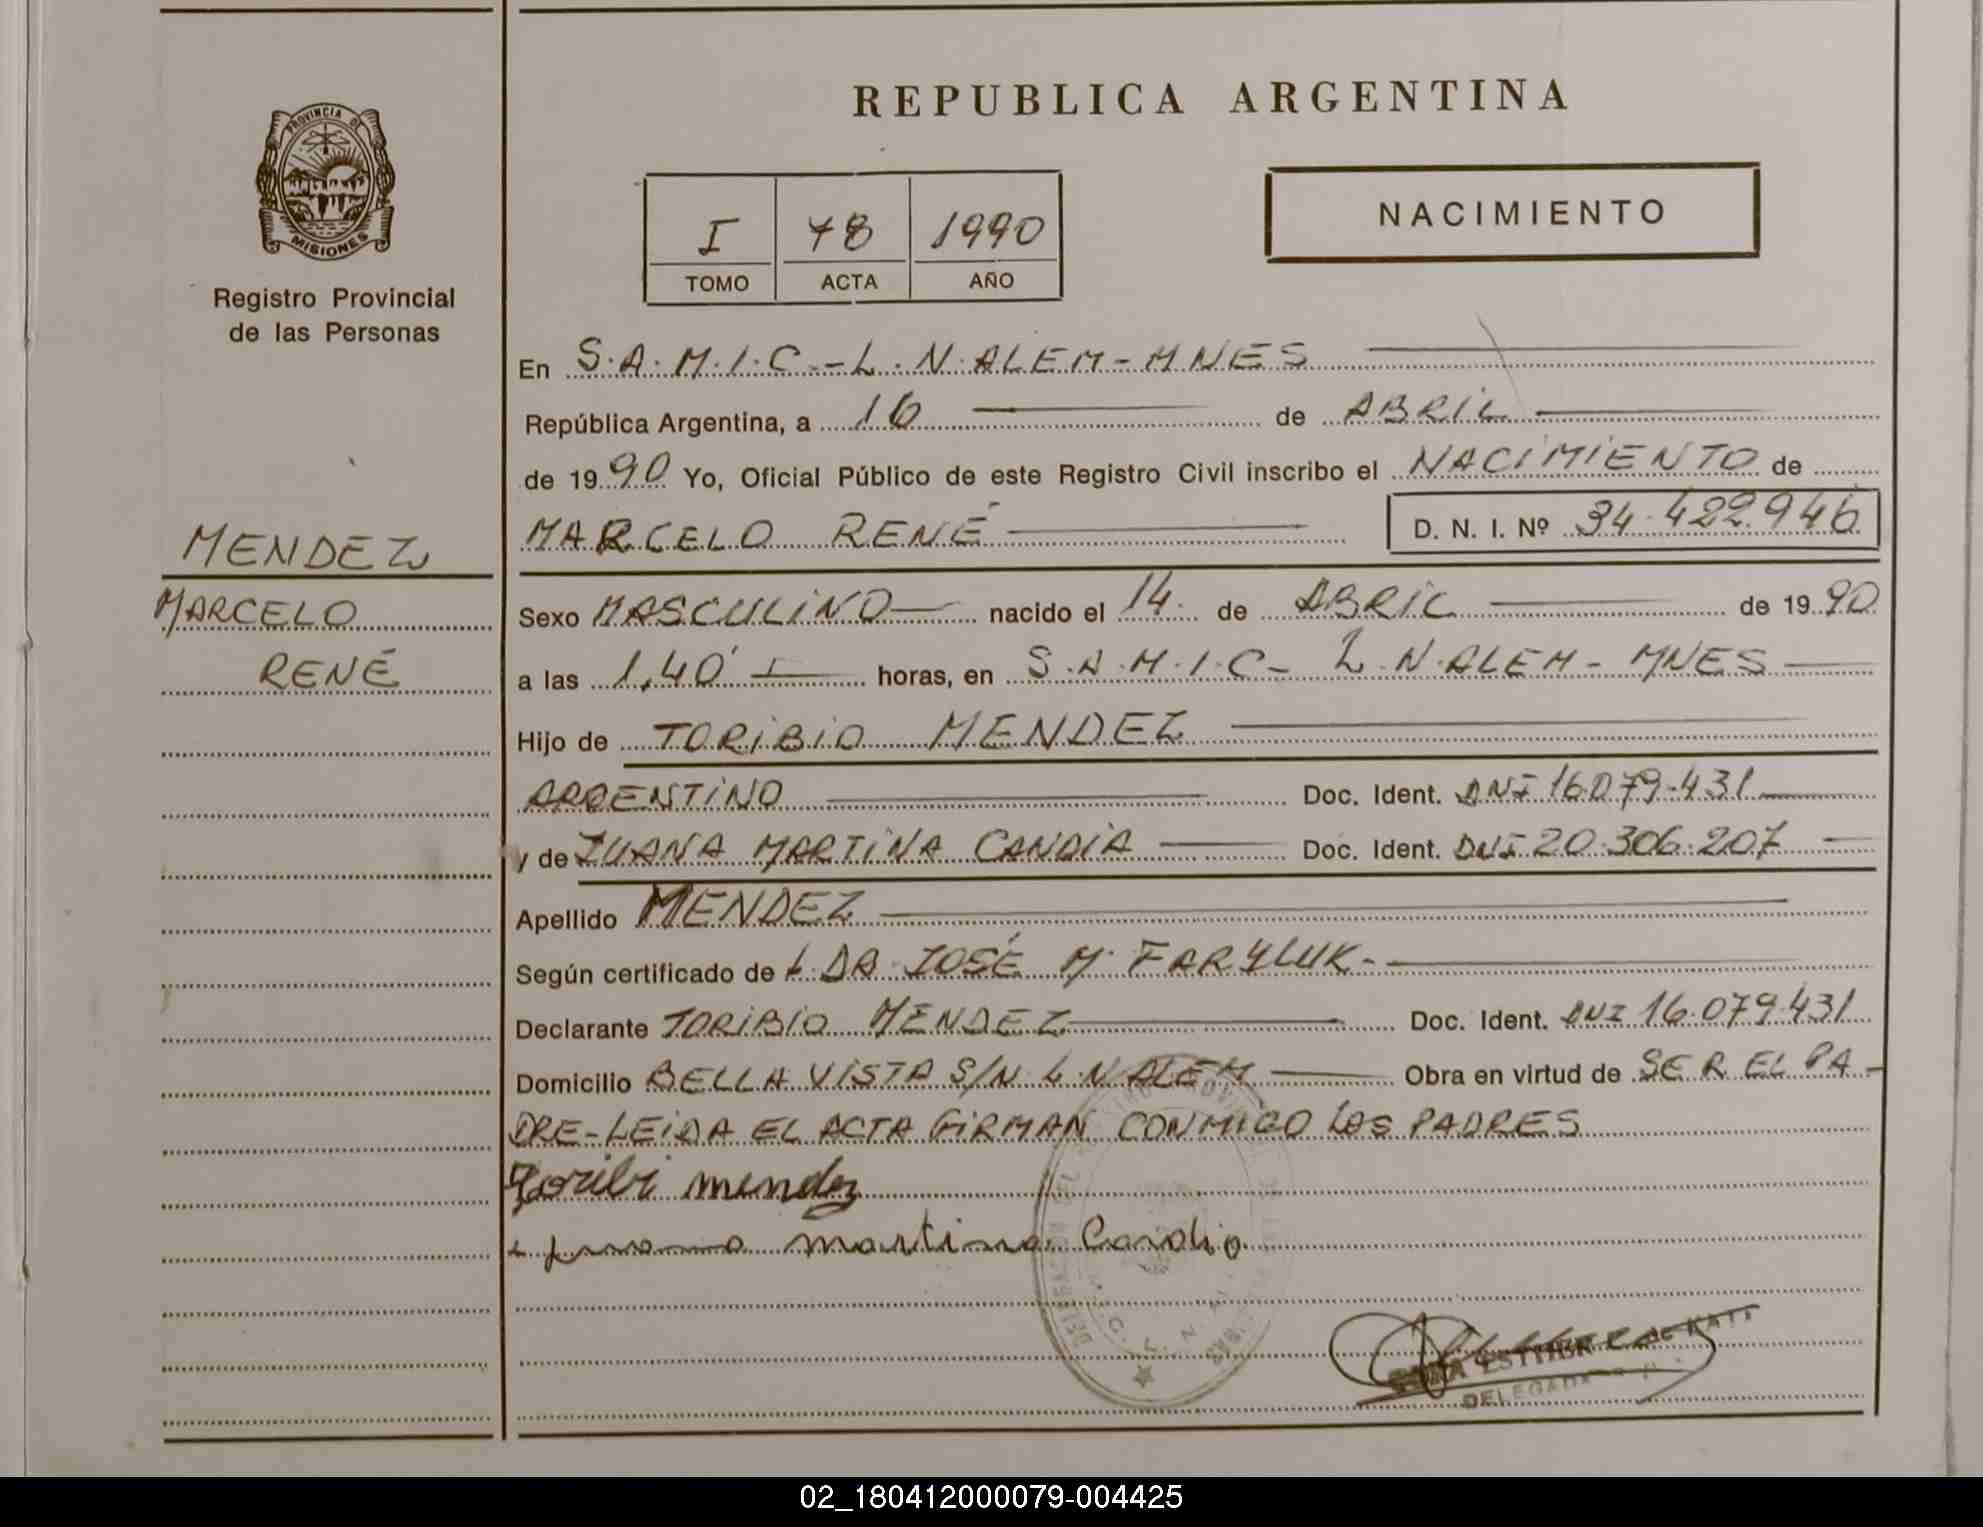 REPUBLICA ARGENTINA
PROVINCIA DE
MISIONES
Registro Provincial
de las Personas
I 78 1990
TOMO ACTA AÑO
NACIMIENTO
En S.A.M.I.C.-L.N.ALEM-MNES
República Argentina, a 16 de ABRIL
de 1990 Yo, Oficial Público de este Registro Civil inscribo el NACIMIENTO de
MARCELO RENÉ D. N. I. Nº 34.422.946
MENDEZ
MARCELO
RENÉ
Sexo MASCULINO nacido el 14 de ABRIL de 1990
a las 1,40 horas, en S.A.M.I.C- L.N.ALEM-MNES
Hijo de TORIBIO MENDEZ
ARGENTINO Doc. Ident. DNI 16.079.431
y de JUANA MARTINA CANDIA Doc. Ident. DNI 20.306.207
Apellido MENDEZ
Según certificado de L.DA JOSÉ M. FARYLUK-
Declarante TORIBIO MENDEZ Doc. Ident. DNI 16.079.431
Domicilio BELLA VISTA S/N L.N ALEM Obra en virtud de SER EL PA-
DRE-LEIDA EL ACTA FIRMAN CONMIGO LOS PADRES
Toribi mendez
martina Candia
ESTHER de
DELEGADA
02_180412000079-004425